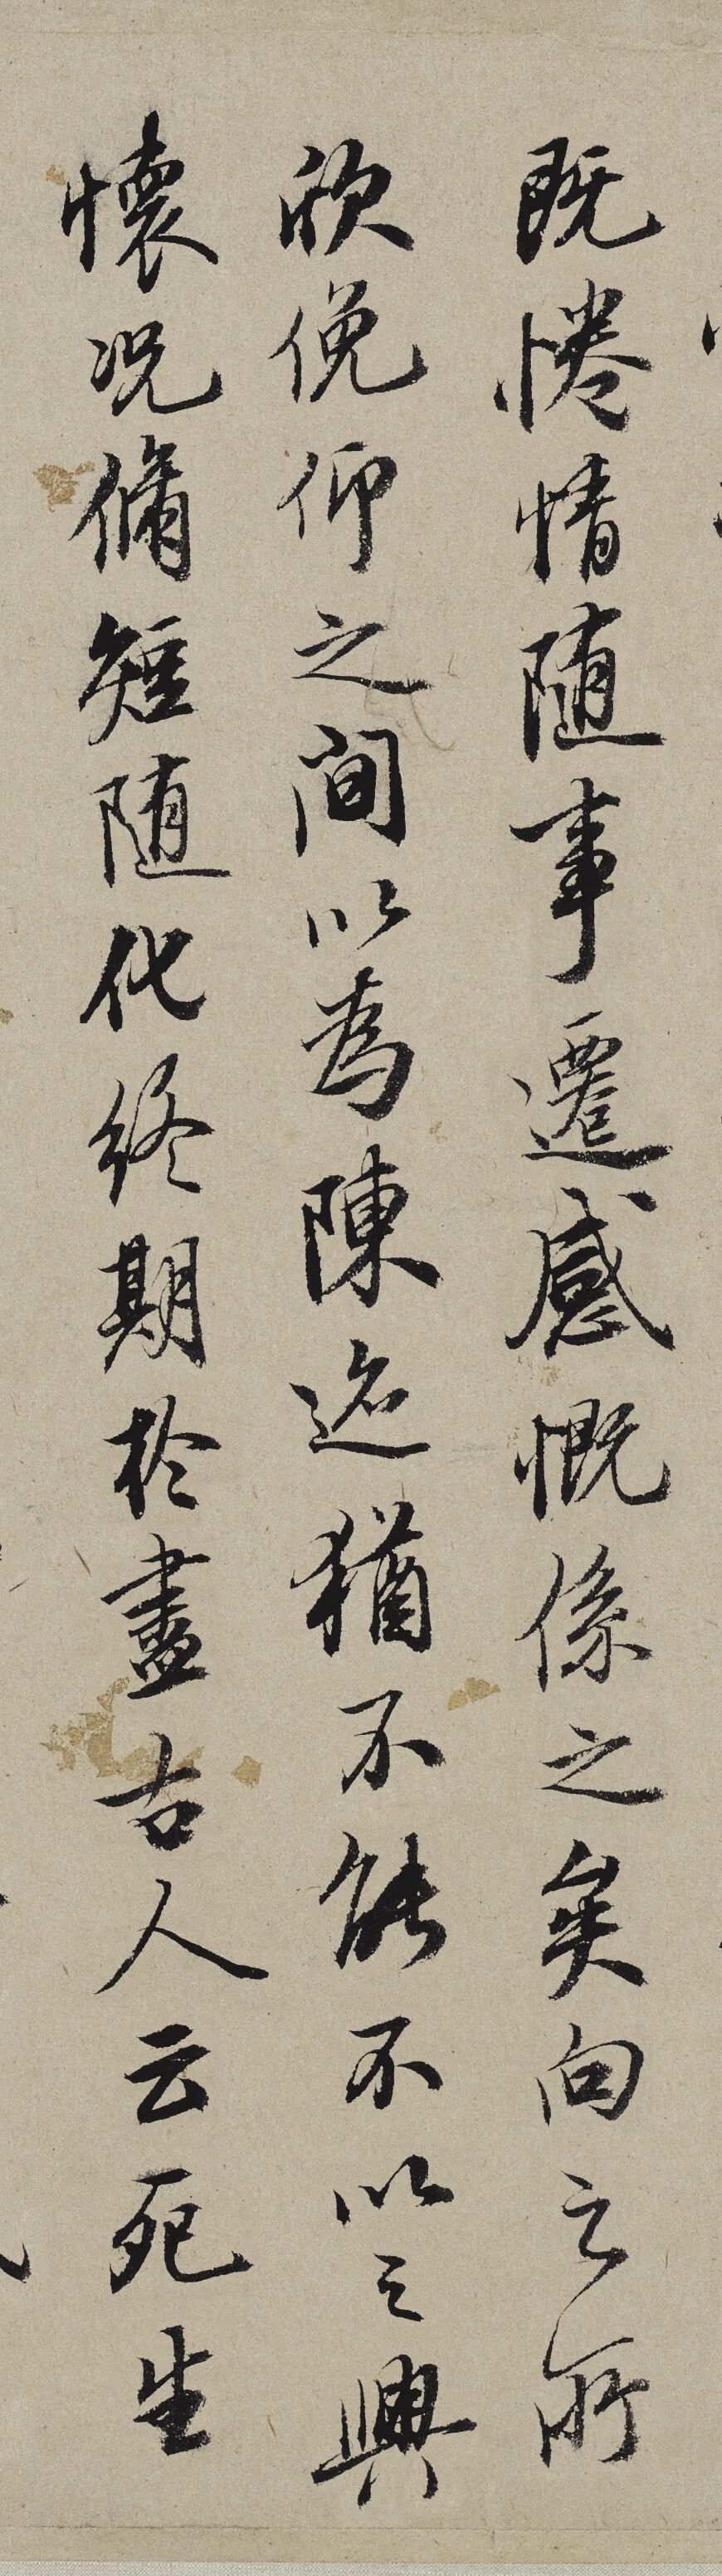 既惓情随事遷感慨係之矣向之所
欣俛仰之間以為陳迹猶不能不以之興
懷況脩短随化終期於盡古人云死生